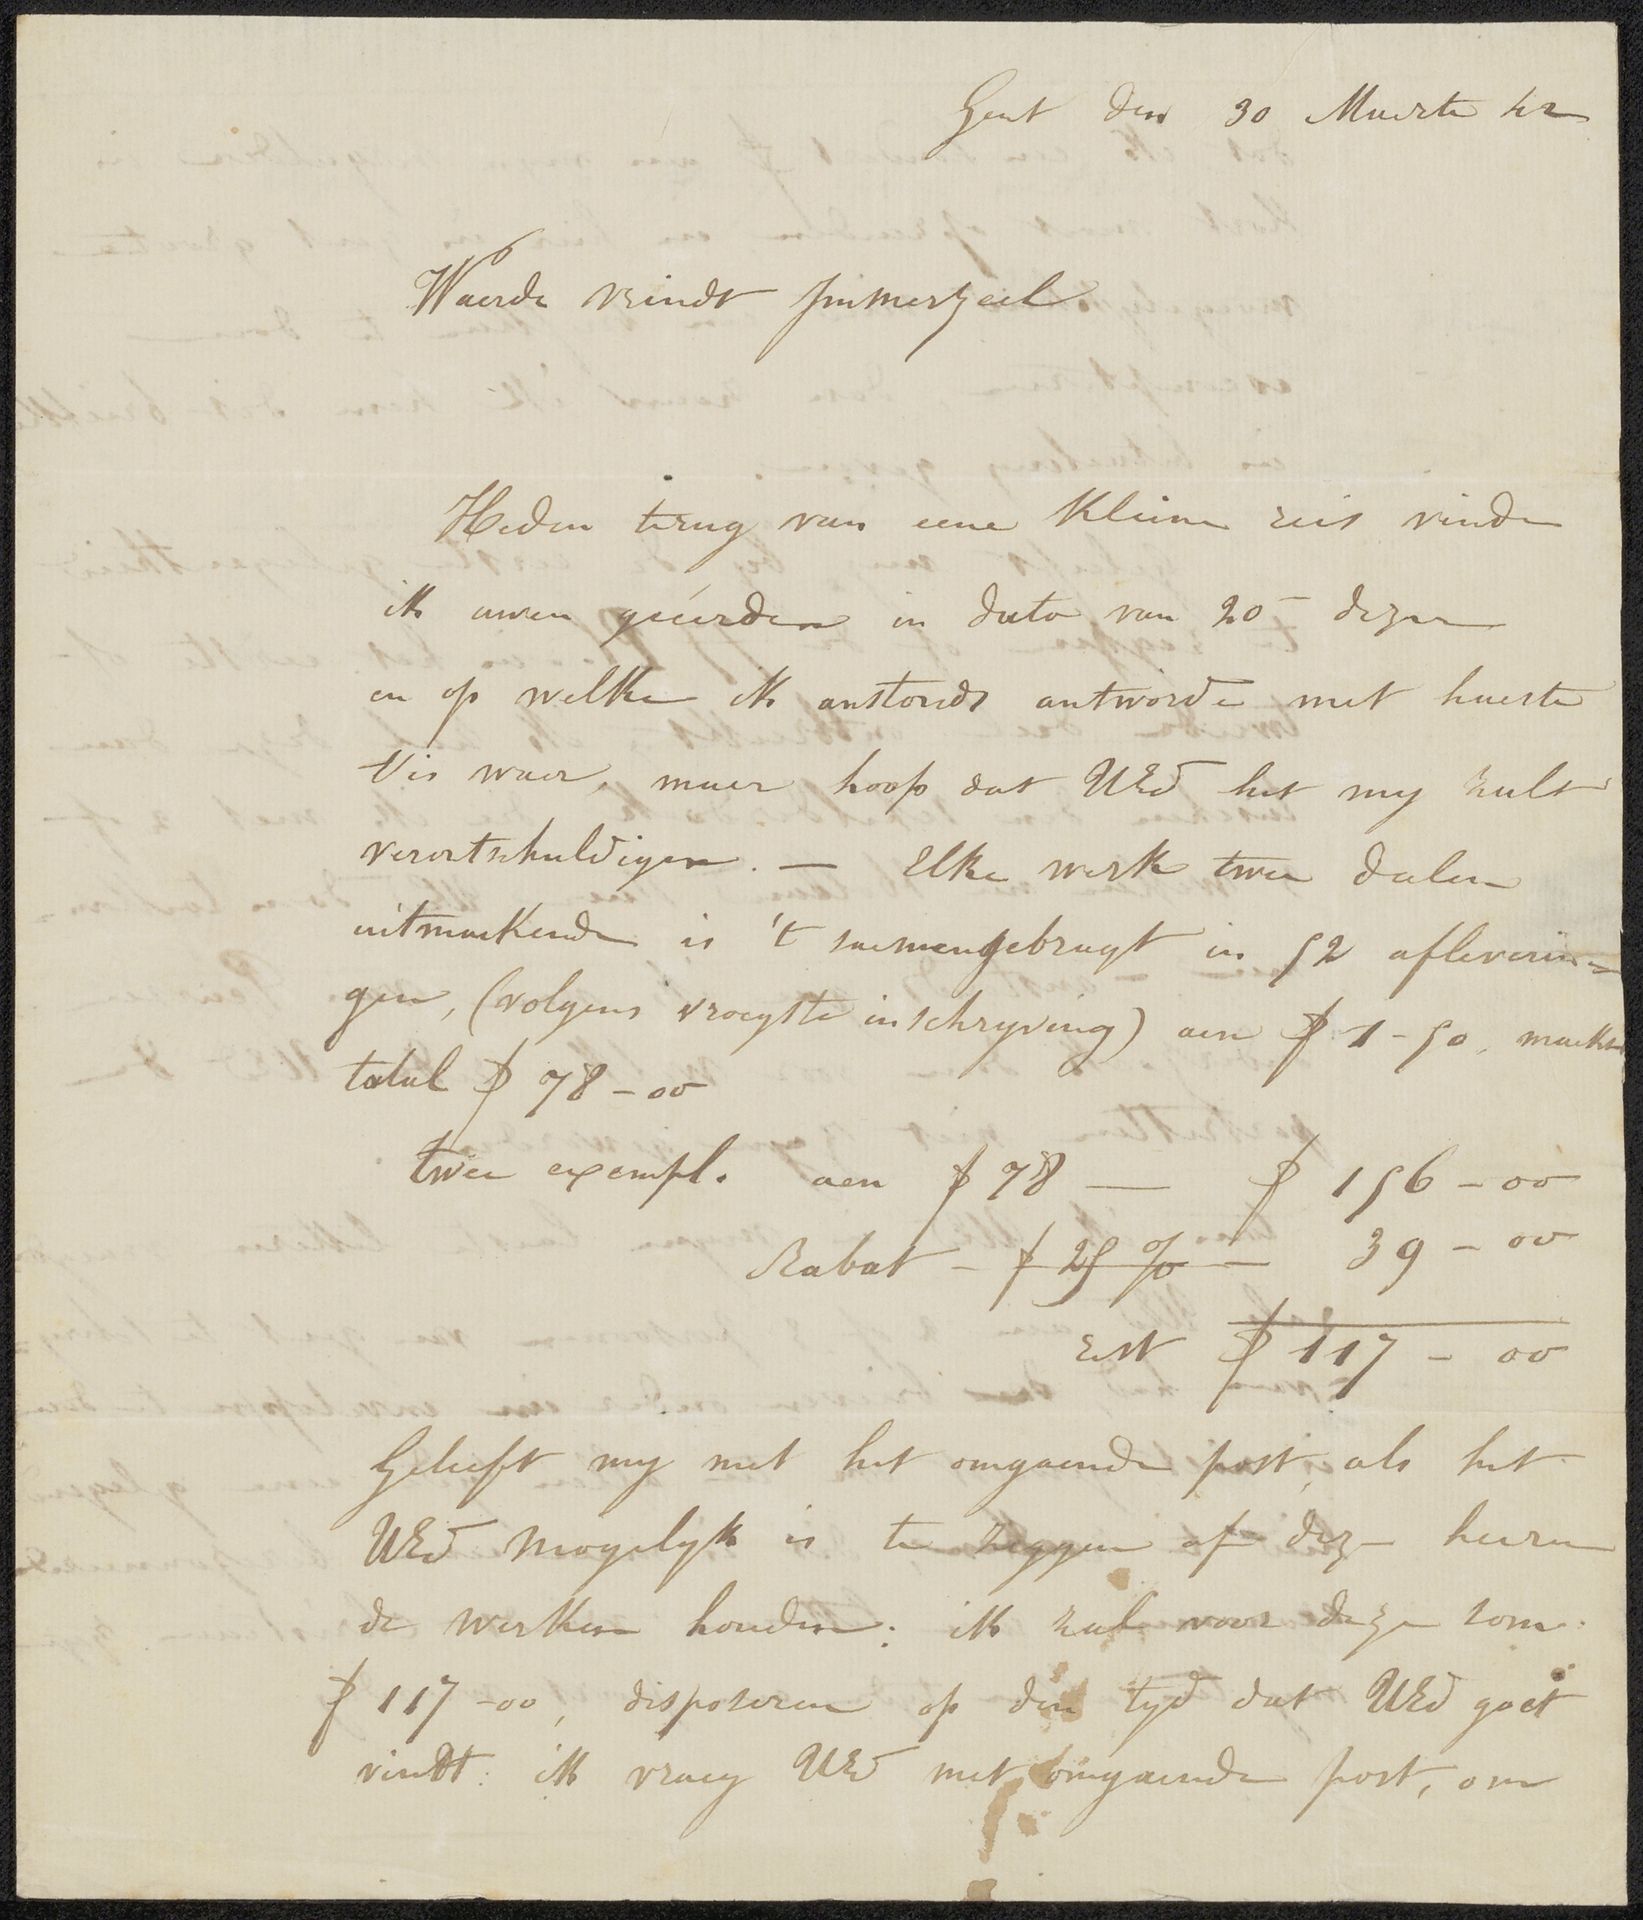 Gent den 30 Maerte 42
Waerde vrindt Immerzeel
Heden terug van eene kleine reis vinde
ik uwen geëerden in dato van 20 dezer
en op welke ik anstonds antworde met haeste
tis waer, maer hoop dat UEd het my zult
verontschuldigen. — Elke werk twee deelen
uitmaekende is 't saemengebragt in 52 afleverin-
gen, (volgens vroegste inschryving) aen f 1-50, maekt
totael f 78-00
twee exempl. aen f 78 — f 156-00
Rabat - f 25 % — 39-00
rest f 117-00
Gelieft my met het omgaende post, als het
UEd mogelyk is te zeggen of deze heeren
de werken houden: ik zal voor deze som
f 117-00, disposeren op den tyd dat UEd goet
vindt: ik vraeg UEd met omgaende post, om